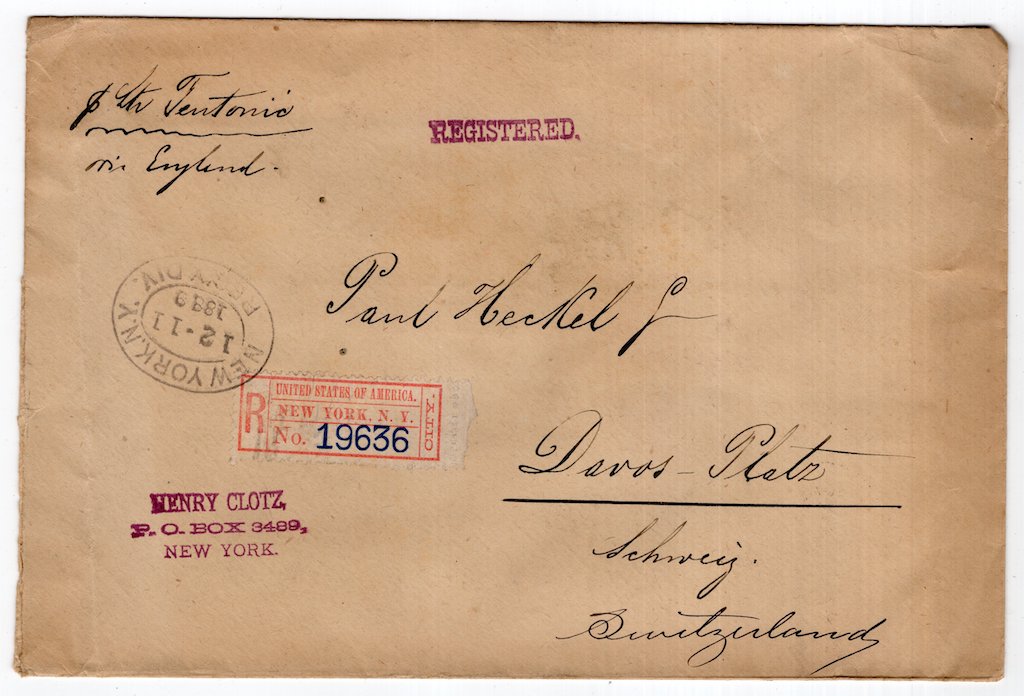 p Str Teutonic
via England.
REGISTERED.
NEW YORK, N.Y.
REG'Y DIV.
12-11
1899
Paul Heckel
R
UNITED STATES OF AMERICA.
NEW YORK, N. Y.
No. 19636
CITY.
Davos-Platz
HENRY CLOTZ,
P. O. BOX 3489,
NEW YORK.
Schweiz.
Switzerland